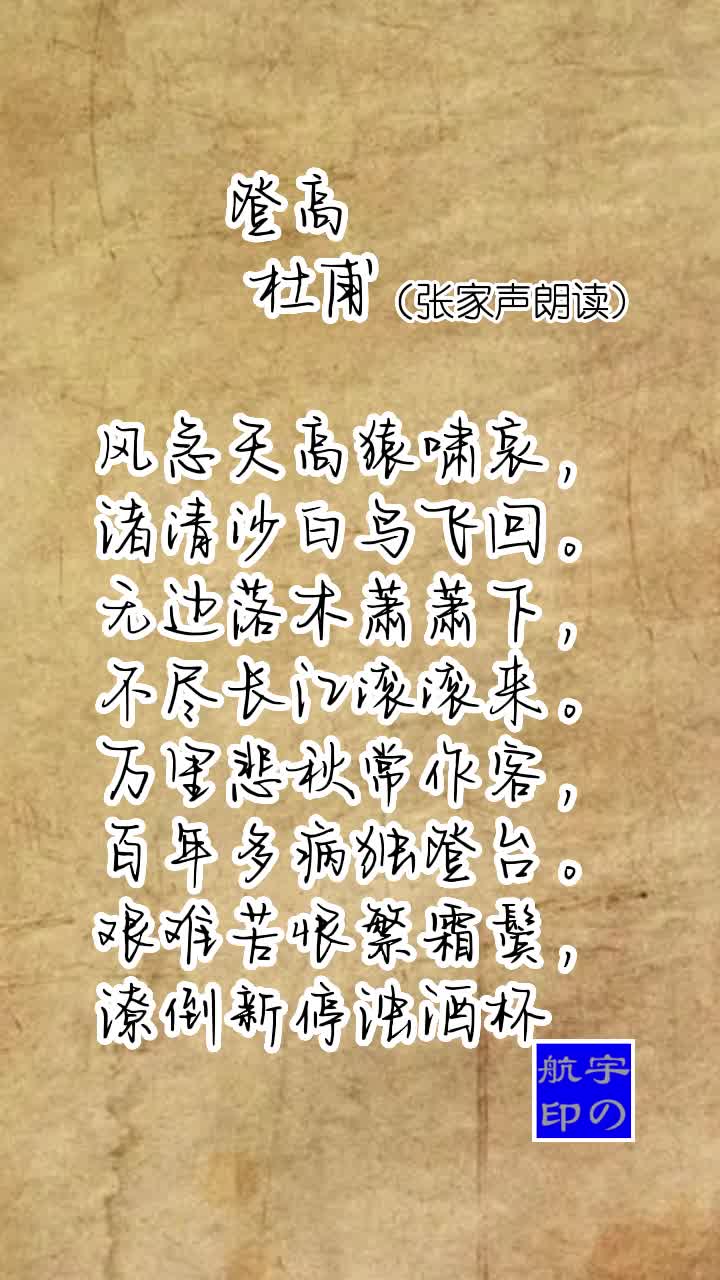 登高
杜甫（张家声朗读）
风急天高猿啸哀，
渚清沙白鸟飞回。
无边落木萧萧下，
不尽长江滚滚来。
万里悲秋常作客，
百年多病独登台。
艰难苦恨繁霜鬓，
潦倒新停浊酒杯
宇航
の印